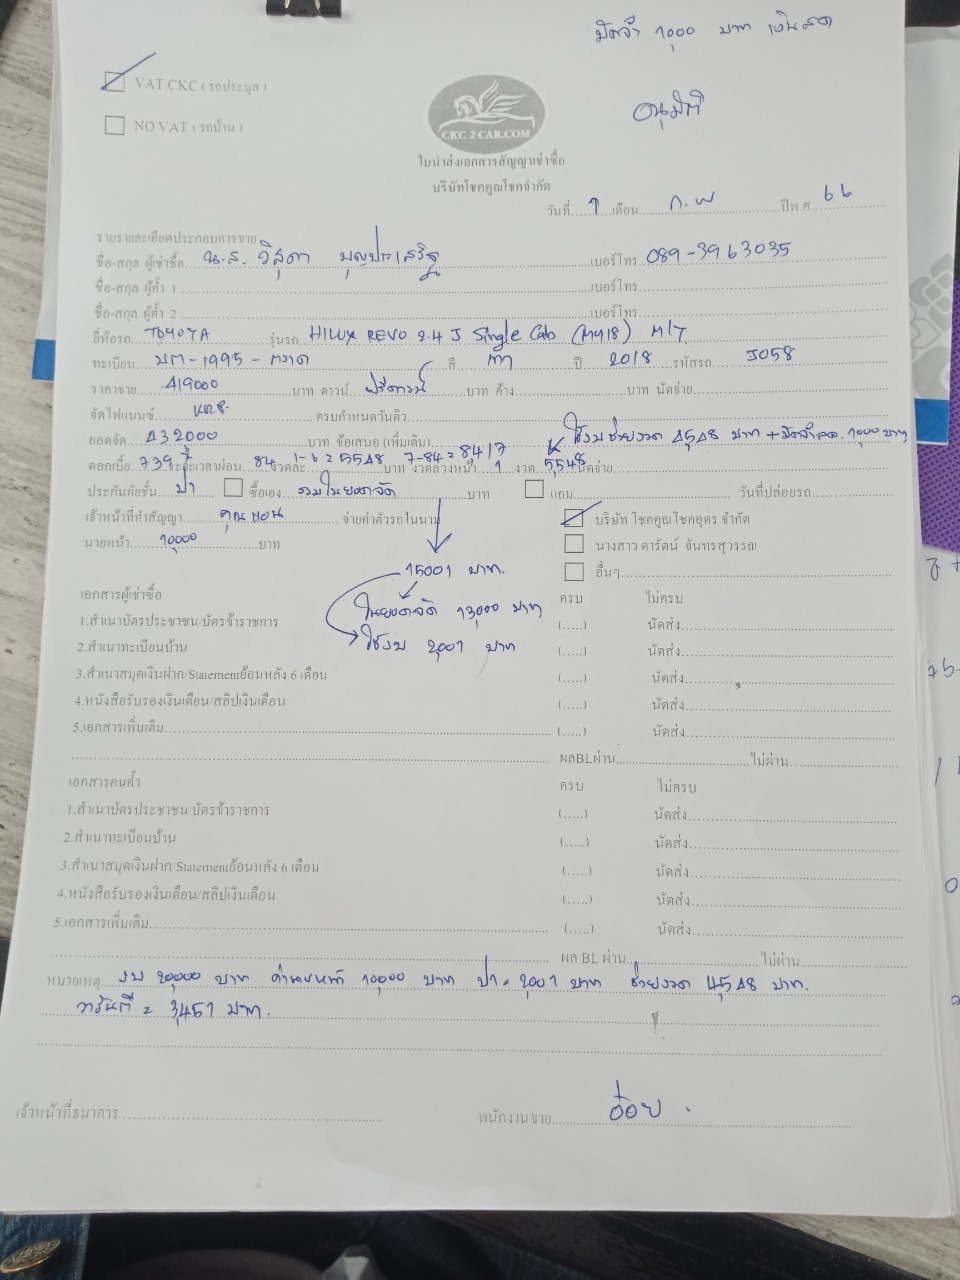 มัดจำ 1000 บาท เงินสด
VAT CKC ( รถประมูล )
อนุมัติ
NO VAT ( รถบ้าน )
CKC 2 CAR.COM
ใบนำส่งเอกสารสัญญาเช่าซื้อ
บริษัทโชคคูณโชคจำกัด
วันที่ 1 เดือน ก.พ ปีพ.ศ. 66
รายรายละเอียดประกอบการขาย
ชื่อ-สกุล ผู้เช่าซื้อ น.ส. วิสุดา บุญประเสริฐ เบอร์โทร 089-3963035
ชื่อ-สกุล ผู้ค้ำ 1 เบอร์โทร
ชื่อ-สกุล ผู้ค้ำ 2 เบอร์โทร
ยี่ห้อรถ TOYOTA รุ่นรถ HILUX REVO 2.4 J Single Cab (MY18) M/T
ทะเบียน บต-1995-ตราด สี เทา ปี 2018 รหัสรถ J058
ราคาขาย 419000 บาท ดาวน์ ฟรีดาวน์ บาท ค้าง บาท นัดจ่าย
จัดไฟแนนซ์ ครบกำหนดวันคิว
ยอดจัด 432000 บาท ข้อเสนอ (เพิ่มเติม) ใช้งบช่วยงวด 4,548 บาท + มัดจำสด 1000 บาท
ดอกเบี้ย 7.39 ระยะเวลาผ่อน 84 งวดละ 1-6 = 5548 7-84 = 8,417 บาท งวดล่วงหน้า 1 งวด 5,548 นัดจ่าย
ประกันภัยชั้น ป1 ซื้อเอง รวมในยอดจัด บาท แถม วันที่ปล่อยรถ
เจ้าหน้าที่ทำสัญญา คุณแอน จ่ายค่าตัวรถในนาม บริษัท โชคคูณโชคอุดร จำกัด
นายหน้า 10,000 บาท นางสาว ดารัตน์ จันทรสุวรรณ
15001 บาท. อื่นๆ
เอกสารผู้เช่าซื้อ ในยอดจัด 13,000 บาท ครบ ไม่ครบ
1.สำเนาบัตรประชาชน/บัตรข้าราชการ (.....) นัดส่ง
2.สำเนาทะเบียนบ้าน ใช้งบ 2,001 บาท (.....) นัดส่ง
3.สำเนาสมุดเงินฝาก/Statementย้อนหลัง 6 เดือน (.....) นัดส่ง
4.หนังสือรับรองเงินเดือน/สลิปเงินเดือน (.....) นัดส่ง
5.เอกสารเพิ่มเติม (.....) นัดส่ง
ผลBLผ่าน ไม่ผ่าน
เอกสารคนค้ำ ครบ ไม่ครบ
1.สำเนาบัตรประชาชน/บัตรข้าราชการ (.....) นัดส่ง
2.สำเนาทะเบียนบ้าน (.....) นัดส่ง
3.สำเนาสมุดเงินฝาก/Statementย้อนหลัง 6 เดือน (.....) นัดส่ง
4.หนังสือรับรองเงินเดือน/สลิปเงินเดือน (.....) นัดส่ง
5.เอกสารเพิ่มเติม (.....) นัดส่ง
ผล BL ผ่าน ไม่ผ่าน
หมายเหตุ งบ 20,000 บาท ค่านายหน้า 10,000 บาท ป1 = 2,001 บาท ช่วยงวด 4,548 บาท.
วารันตี = 3,451 บาท.
เจ้าหน้าที่ธนาคาร พนักงานขาย อ๋อย